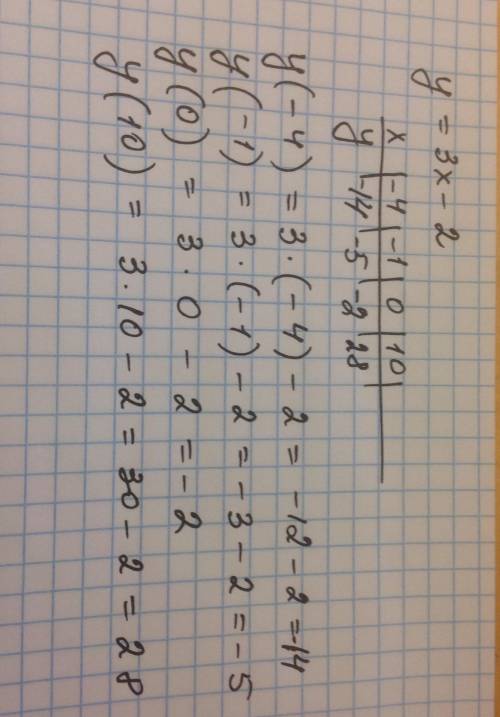 y = 3x - 2
x | -4 | -1 | 0 | 10 |
y | -14 | -5 | -2 | 28 |
y(-4) = 3·(-4) - 2 = -12 - 2 = -14
y(-1) = 3·(-1) - 2 = -3 - 2 = -5
y(0) = 3·0 - 2 = -2
y(10) = 3·10 - 2 = 30 - 2 = 28